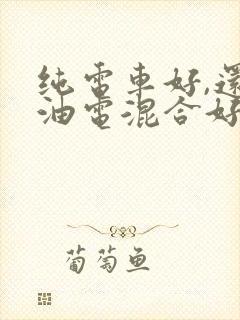 纯電車好,還
油電混合好
葡萄鱼